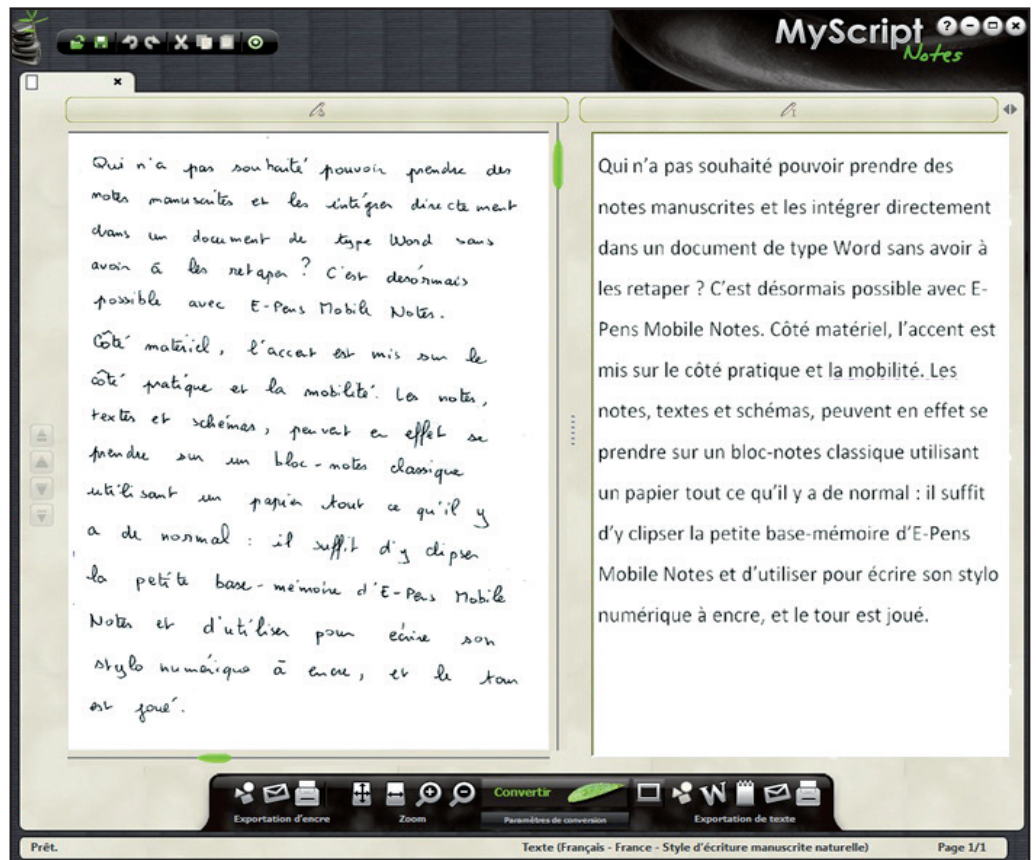 MyScript
Notes
Qui n'a pas souhaité pouvoir prendre des
notes manuscrites et les intégrer directement
dans un document de type Word sans
avoir à les retaper ? C'est desórmais
possible avec E-Pens Mobile Notes.
Côté matériel, l'accent est mis sur le
côté pratique et la mobilité. Les notes,
textes et schémas, peuvent en effet se
prendre sur un bloc-notes classique
utilisant un papier tout ce qu'il y
a de normal : il suffit d'y clipser
la petite base-mémoire d'E-Pens Mobile
Notes et d'utiliser pour écrire son
stylo numérique à encre, et le tour
est joué.
Qui n'a pas souhaité pouvoir prendre des
notes manuscrites et les intégrer directement
dans un document de type Word sans avoir à
les retaper ? C'est désormais possible avec E-
Pens Mobile Notes. Côté matériel, l'accent est
mis sur le côté pratique et la mobilité. Les
notes, textes et schémas, peuvent en effet se
prendre sur un bloc-notes classique utilisant
un papier tout ce qu'il y a de normal : il suffit
d'y clipser la petite base-mémoire d'E-Pens
Mobile Notes et d'utiliser pour écrire son stylo
numérique à encre, et le tour est joué.
Convertir
Exportation d'encre
Zoom
Paramètres de conversion
Exportation de texte
Prêt.
Texte (Français - France - Style d'écriture manuscrite naturelle)
Page 1/1